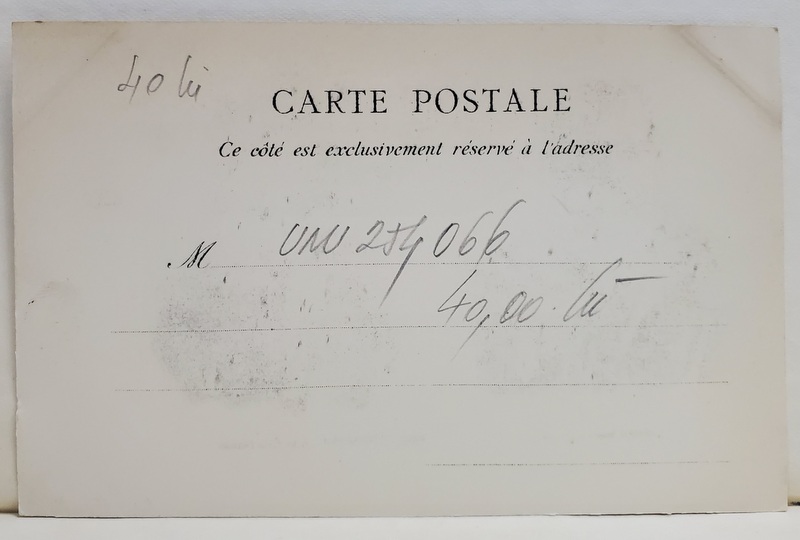 40 lei
CARTE POSTALE
Ce côté est exclusivement réservé à l'adresse
M 254066
40,00 lei